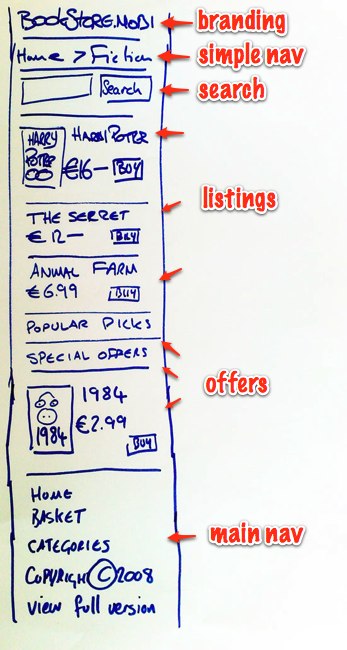 BOOKSTORE.MOBI
branding
Home > Fiction
simple nav
Search
search
HARRY POTER
HARRY
POTER
€16—
BUY
listings
THE SECRET
€12—
BUY
ANIMAL FARM
€6.99
BUY
POPULAR PICKS
SPECIAL OFFERS
offers
1984
1984
€2.99
BUY
HOME
BASKET
CATEGORIES
main nav
COPYRIGHT © 2008
view full version